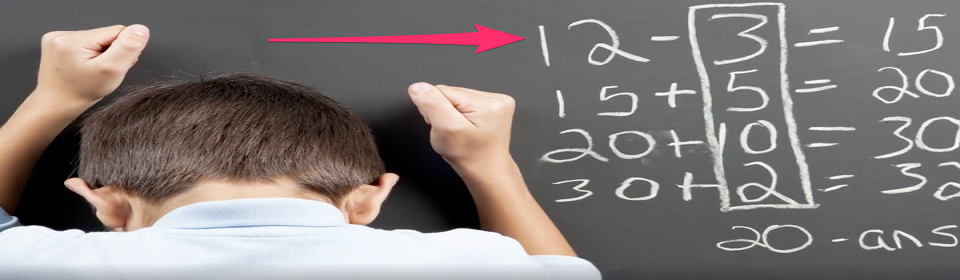 12 - 3 = 15
15 + 5 = 20
20 + 10 = 30
30 + 2 = 32
20 - ans